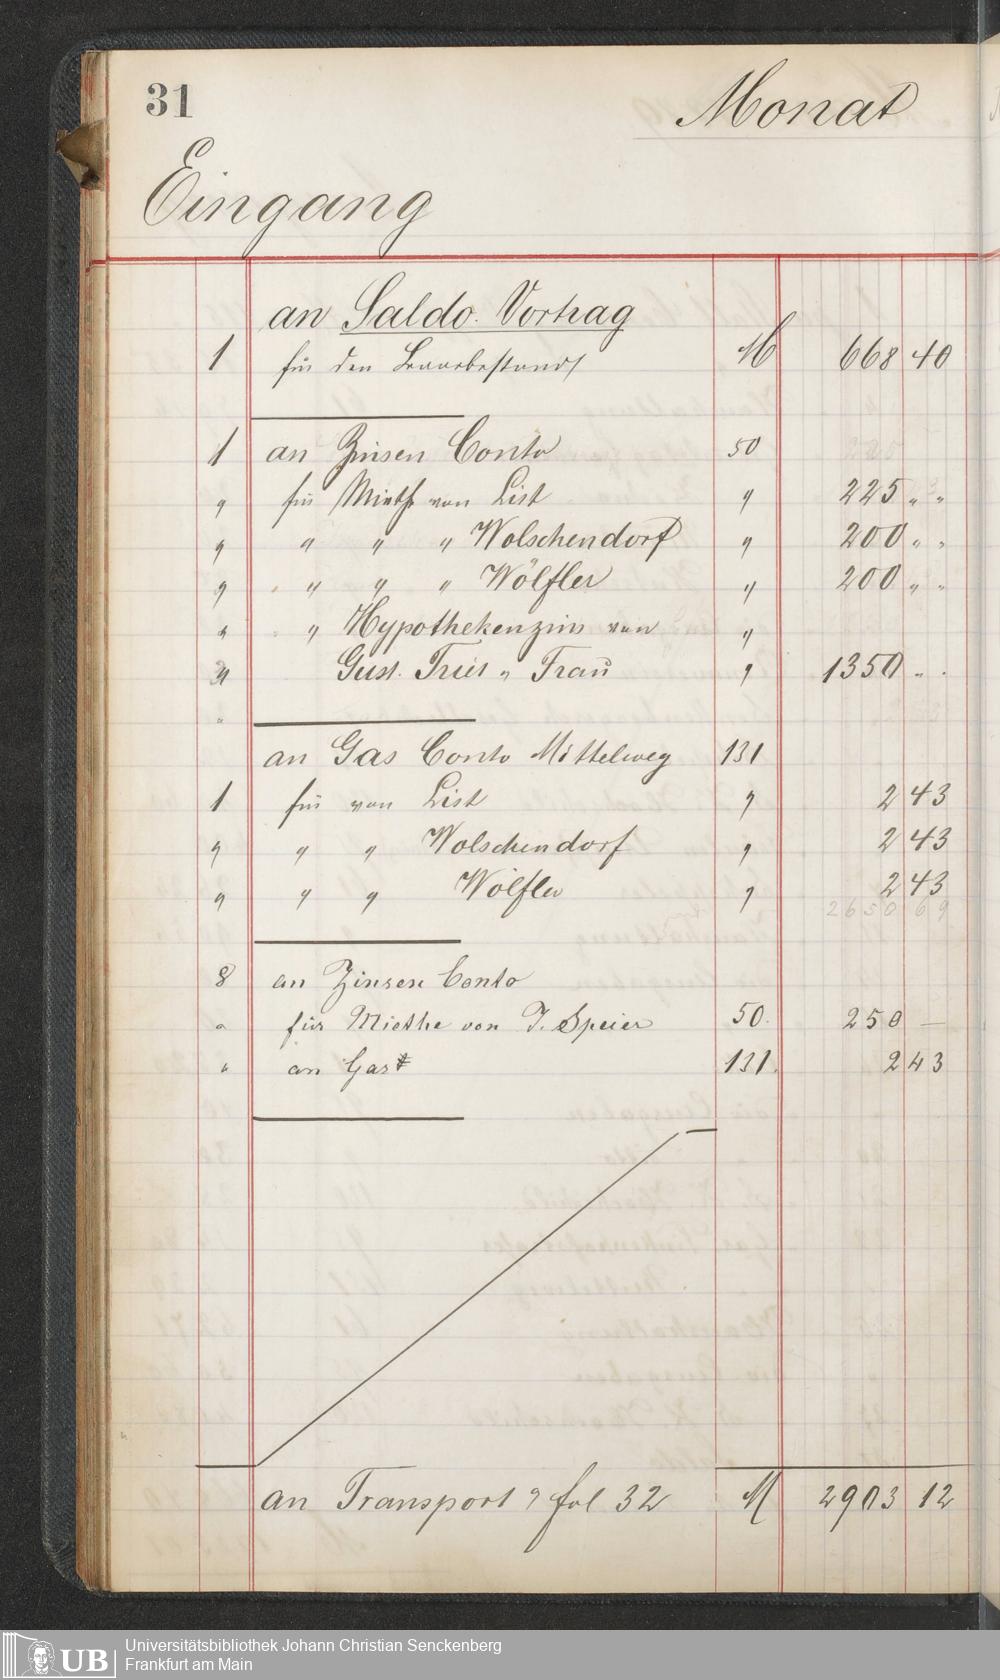 31 Monat
Eingang
an Saldo Vortrag
1 für den Baarbestand M 668 40
1 an Zinsen Conto 50
" für Mieth von List " 225 " "
" " " " Wolschendorf " 200 " "
" " " " Wölfler " 200 " "
" " Hypothekenzins von "
" Gust. Trier " Frau " 1350 " "
"
an Gas Conto Mittelweg 131
1 für von List " 2 43
" " " Wolschendorf " 2 43
" " " Wölfler " 2 43
2650 69
8 an Zinsen Conto
" für Miethe von J. Speier 50. 250 —
" an Gas 131. 2 43
an Transport " fol 32 M 2903 12
UB Universitätsbibliothek Johann Christian Senckenberg
Frankfurt am Main